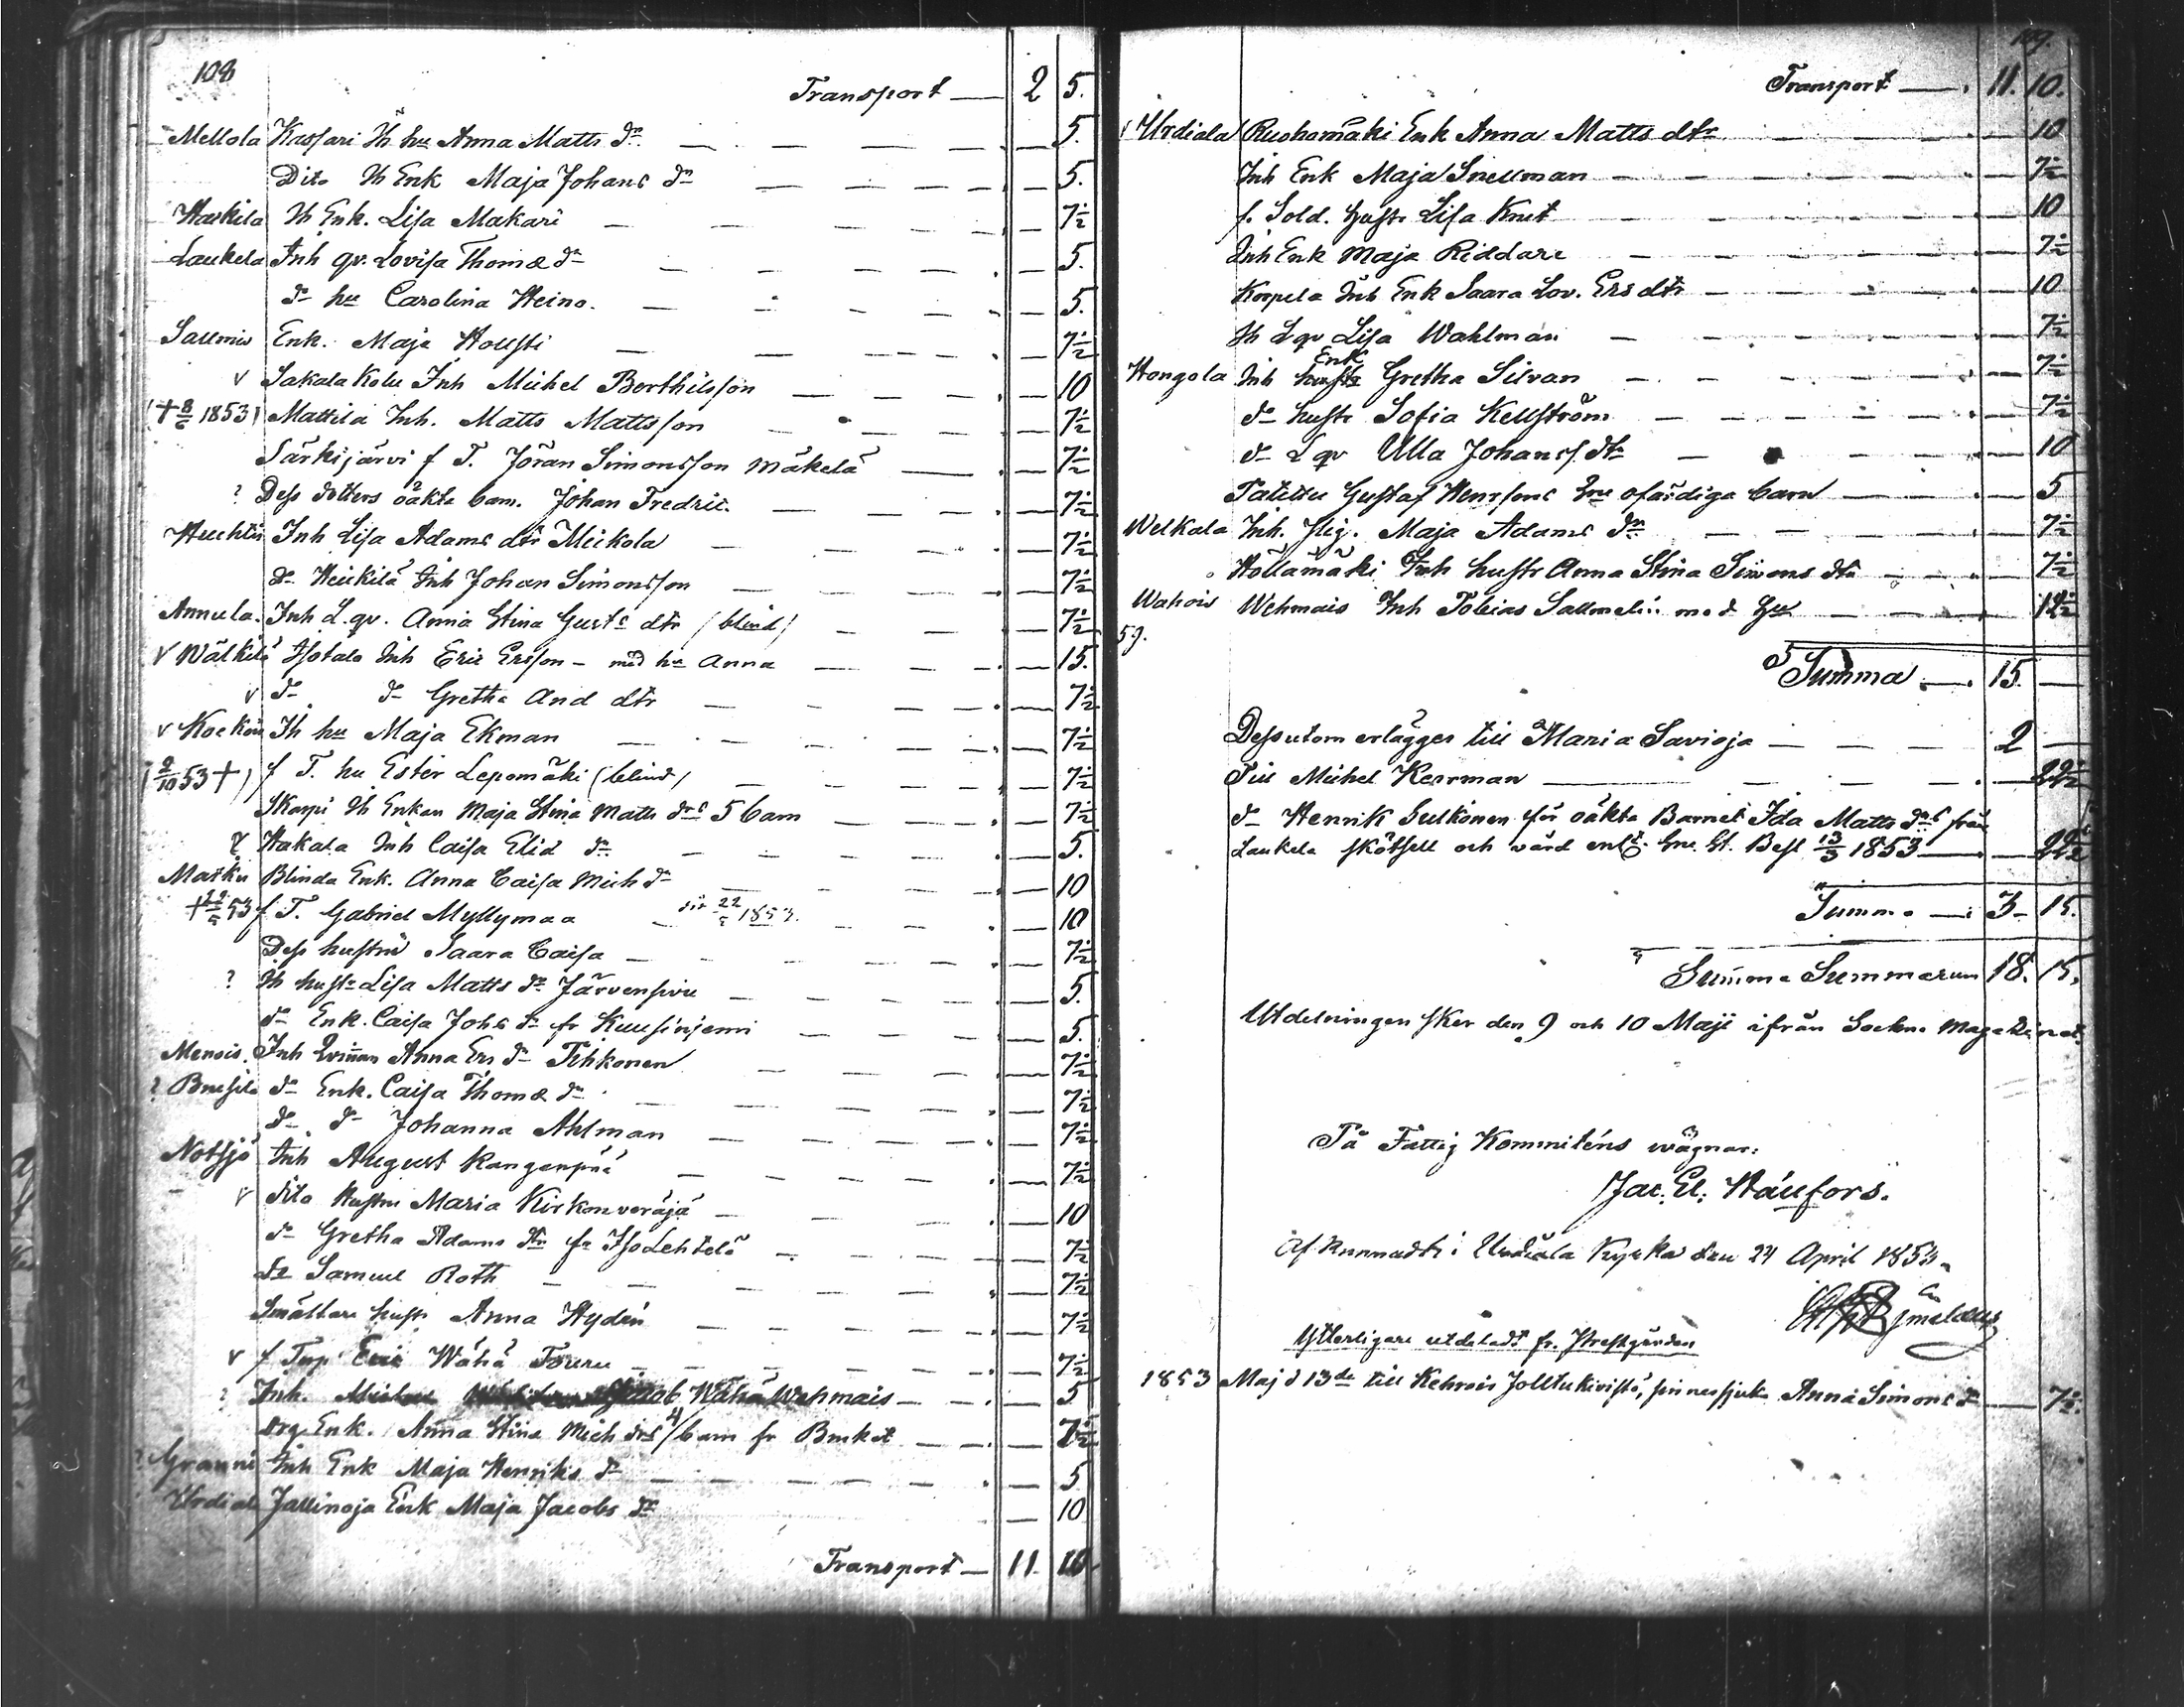 108
Transport — 2 5.
Mellola Kassari Ih hu Anna Matts dr 5.
Dito Ih Enk Maja Johans dr 5.
Haskila Ih Enk. Lisa Makari 7½
Laukela Inh qv. Lovisa Thomæ dr 5.
dr hu Carolina Heino. 5.
Salmis Enk. Maja Housti 7½
v Sakala Kolu Inh Michel Berthilsson 10
(† 8/6 1853) Mattila Inh. Matts Mattsson 7½
Särkijärvi f T. Jöran Simonsson Mäkelä 7½
? Dess dotters oäkta barn. Johan Fredric. 7½
Huchtis Inh Lisa Adams dtr Mickola 7½
dr Heickilä Inh Johan Simonsson 7½
Annula. Inh L. qv. Anna Stina Gusts dtr (blind) 7½
v Wälkilä Isotalo Inh Eric Ersson – med hu Anna 15.
v dr dr Gretha And dtr 7½
v Kockois Ih hu Maja Ekman 7½
(2/10 53 †) f T. hu Ester Lepomäki (blind) 7½
Skarpi Ih Enkan Maja Stina Matts drs 5 barn 7½
Hakala Inh Caisa Elid dr 5.
Matku Blinda Enk. Anna Caisa Mich dr 10
† 22/5 53 f T. Gabriel Myllymaa 22/5 1853. 10
Dess hustru Saara Caisa 7½
? Ih hustr Lisa Matts dr Järvensivu 5.
dr Enk. Caisa Johs dr fr Kuusiniemi 5.
Menois. Inh Qvinnan Anna Ers dr Tihkonen 7½
? dr Enk. Caisa Thomæ dr 7½
dr dr Johanna Ahlman 7½
Notsjö Inh August Kangenpää 7½
v dito Hustru Maria Kirkonveräjä 10
dr Gretha Adams dtr fr Iso Lehtelä 7½
dr Samuel Roth 7½
Smältare hustr Anna Hydén 7½
v f Torp Eric Wähä Touru 7½
? Inh. Jacob Wähä Wehmais 5
Enk. Anna Stina Mich drs 4 barn fr Bruket 7½
? Inh Enk Maja Henriks dr 5
Urdiala Jallinoja Enk Maja Jacobs dr 10
Transport — 11. 10.
109.
Transport — 11. 10.
v Urdiala Ruohomäki Enk Anna Matts dtr 10
Inh Enk Maja Snellman 7½
f. Sold. hustr Lisa Knut 10
Inh Enk Maja Riddare 7½
Korpela Inh Enk Saara Lov. Ers dtr 10
Ih L qv Lisa Wahlman 7½
Enk
Hongola Inh hustr Gretha Silvan 7½
dr hustr Sofia Kellström 7½
dr L qv Ulla Johanss dtr 10
Gustaf Henrsons 2ne ofärdiga barn 5
Welkala Inh. Pig. Maja Adams dr 7½
Höllämäki Inh hustr Anna Stina Simons dtr 7½
Wahois Wehmais Inh Tobias med hu 12½
59.
Summa — 15. —
Dessutom erlägges till Maria Savioja 2 —
Till Michel Kerrman 22½
dr Henrik Sulkonen för oäkta Barnet Ida Matts drs från
Laukela skötsell och wård enl. Gen. St. Besl 13/3 1853 22½
Summa — 3 – 15.
Summa Summarum 18. 15.
Utdelningen sker den 9 och 10 Maji ifrån Sockne Magazinet.
På Fattig Kommiténs wägnar:
Jac. El. Hällfors.
Afkunnadt i Urdiala Kyrka den 24 April 1853.
Ytterligare utdeladt fr. Prestgården
1853 Maj d 13de till Kehrois Jolltukivistö, sinnessjuke Anna Simons dr 7½.